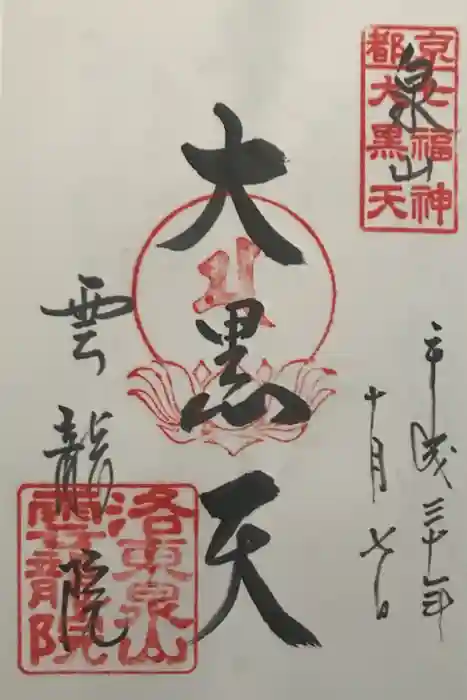 京七福神
都大黒天
泉山
平成三十年
十月七日
大黒天
雲龍院
洛東泉山
雲龍院